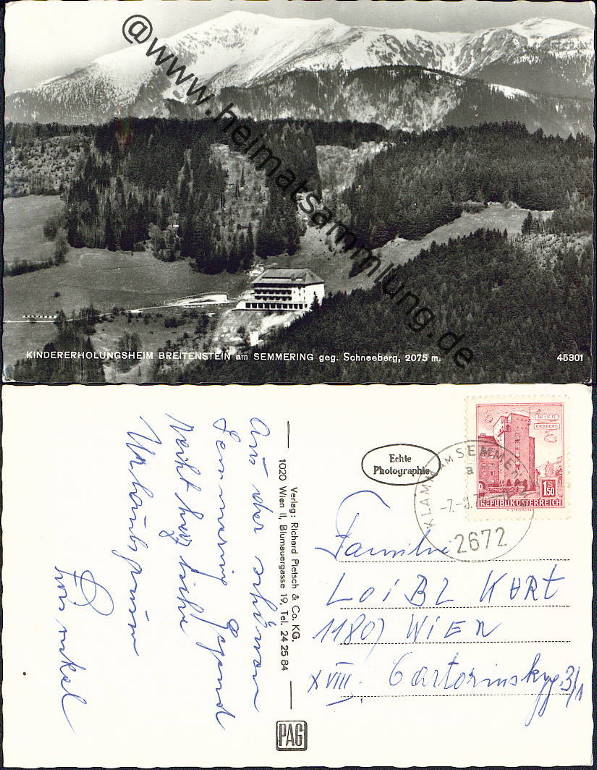 @www.heimatsammlung.de
KINDERERHOLUNGSHEIM BREITENSTEIN am SEMMERING geg. Schneeberg, 2075 m. 45301
Aus der schönen
Semmering Gegend
herzliche
Urlaubsgrüsse
Verlag: Richard Pietsch & Co. KG.
1020 Wien II, Blumauergasse 19, Tel. 24 25 84
PAG
Echte
Photographie
1.50
REPUBLIK ÖSTERREICH
KLAMM AM SEMMERING
a
2672
Familie
LOIBL KURT
1180 WIEN
XVIII. Gartorinskyg. 3/1